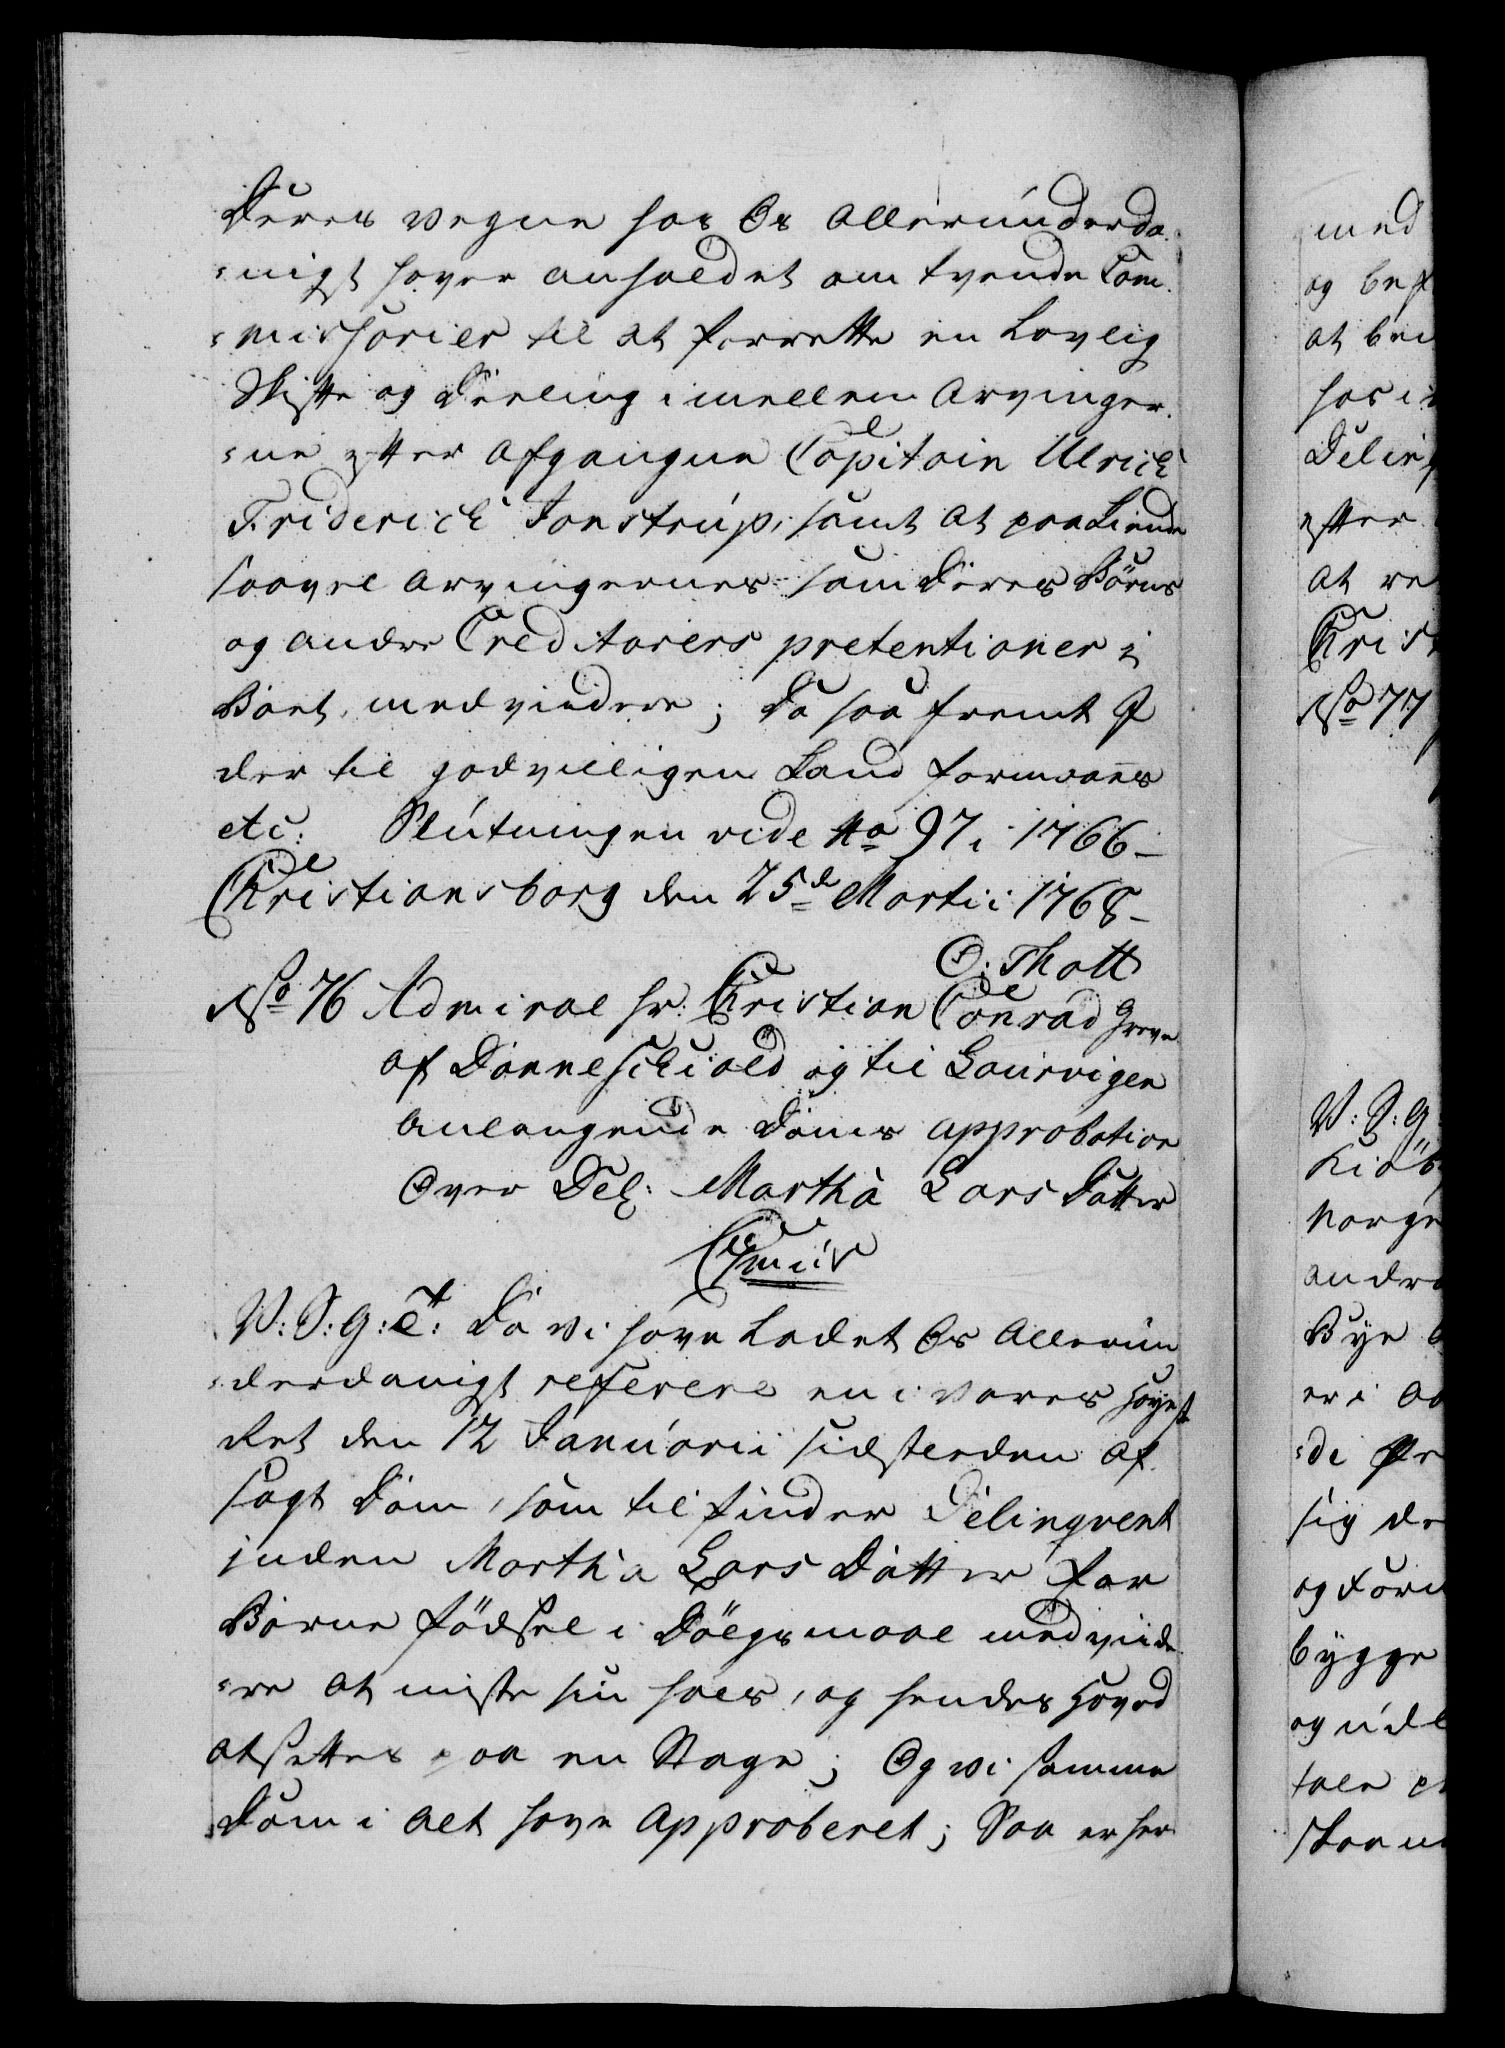 Deres vegne hos Os Allerúnderda-
=nigst haver anholdet om tvende Com-
=missarier til at forrette en Lovlig
Skifte og Deeling imellem Arvinger-
=ne efter afgangne Capitain Ulrich
Friderich Jonstrúp, samt at paakiende
saavel Arvingernes som deres Börns
og andre Creditorers pretentioner i
Boet, med videre; Da saa fremt I
der til godvilligen Eand formaaes
etc: Slútningen vide No 97 i 1766-
Christiansborg den 25de Martii 1768-
O: Thott
No 76 Admiral Hr: Christian Conrad Greve
af Danneschiold og til Laurvigen
anlangende Doms approbation
Over Del: Martha Lars Datter
V: S: G: et: Da vi have Ladet Os Allerún
=derdanigst referere en i vores Høyeste
Ret den 12 Janúarii sidstleden af-
sagt Dom, som tilfinder Delinqvent
inden Martha Lars Datter for
Barne födsel i Dölgsmaal med vide
=re at miste sin Hals, og hendes Hoved
at settes paa en Stage; Og vi samme
Dom i alt have Approberet; Saa er her
med
og bef
at be
hos i
Delinq
efter
at re
Chris
No 77
V: S: G
Kiöb
Norge
andre
Bye
er i
=de
sig de
og
bygge
og